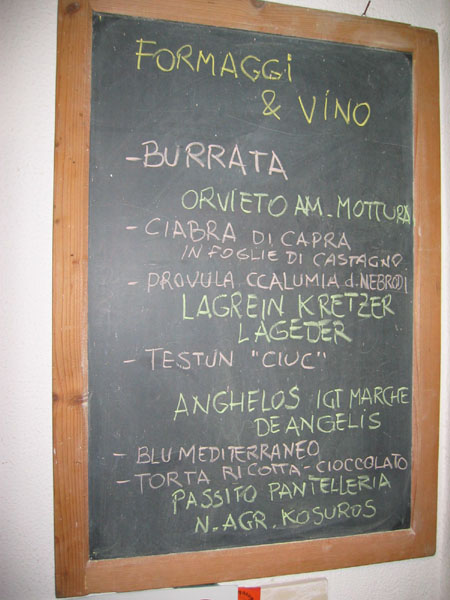 FORMAGGi
& ViNO
- BURRATA
ORVIETO AM. MOTTURA
- CIABRA DI CAPRA
IN FOGLIE DI CASTAGNO
- PROVULA CCALUMIA d. NEBRODI
LAGREIN KRETZER
LAGEDER
- TESTUN "CIUC"
ANGHELOS IGT MARCHE
DE ANGELIS
- BLU MEDITERRANEO
- TORTA RICOTTA-CIOCCOLATO
PASSITO PANTELLERIA
N. AGR. KOSUROS